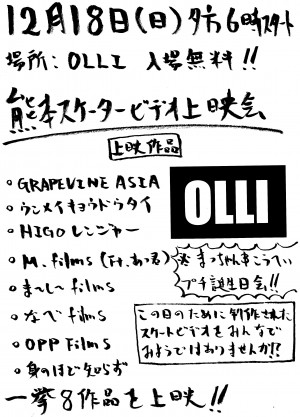 12月18日(日)夕方6時スタート
場所:OLLI 入場無料!!
熊本スケータービデオ上映会
上映作品
・GRAPEVINE ASIA
・ウンメイキョウドウタイ
・HIGOレンジャー
・M.films(ft.あっ君)
・ま〜し〜films
・なべfilms
・OPP Films
・身のほど知らず
OLLI
※まっちゃん&こうへい
プチ誕生日会!!
この日のために制作された
スケートビデオをみんなで
みようではありませんか!?
一挙8作品を上映!!